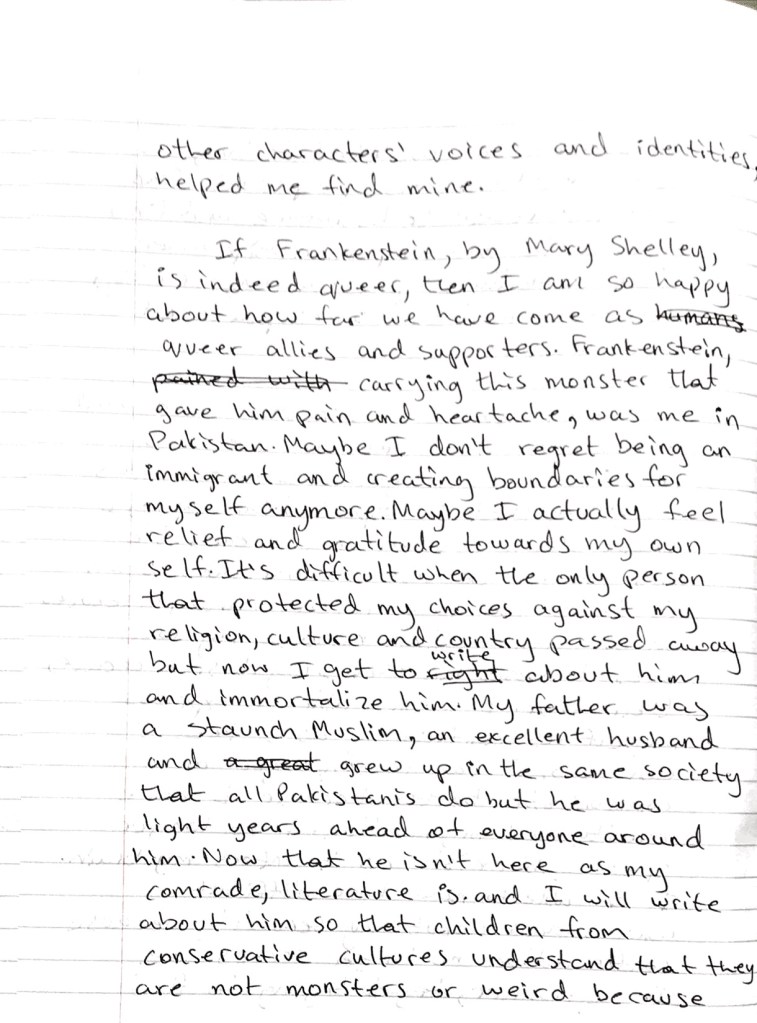 other characters' voices and identities,
helped me find mine.
If Frankenstein, by Mary Shelley,
is indeed queer, then I am so happy
about how far we have come as humans
queer allies and supporters. Frankenstein,
pained with carrying this monster that
gave him pain and heartache, was me in
Pakistan. Maybe I don't regret being an
immigrant and creating boundaries for
myself anymore. Maybe I actually feel
relief and gratitude towards my own
self. It's difficult when the only person
that protected my choices against my
religion, culture and country passed away
but now I get to right write about him
and immortalize him. My father was
a staunch Muslim, an excellent husband
and a great grew up in the same society
that all Pakistanis do but he was
light years ahead of everyone around
him. Now that he isn't here as my
comrade, literature is. and I will write
about him so that children from
conservative cultures understand that they
are not monsters or weird because